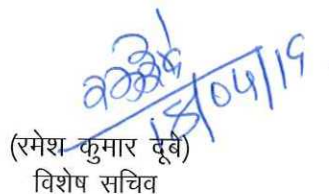 18/04/19
(रमेश कुमार दूबे)
विशेष सचिव